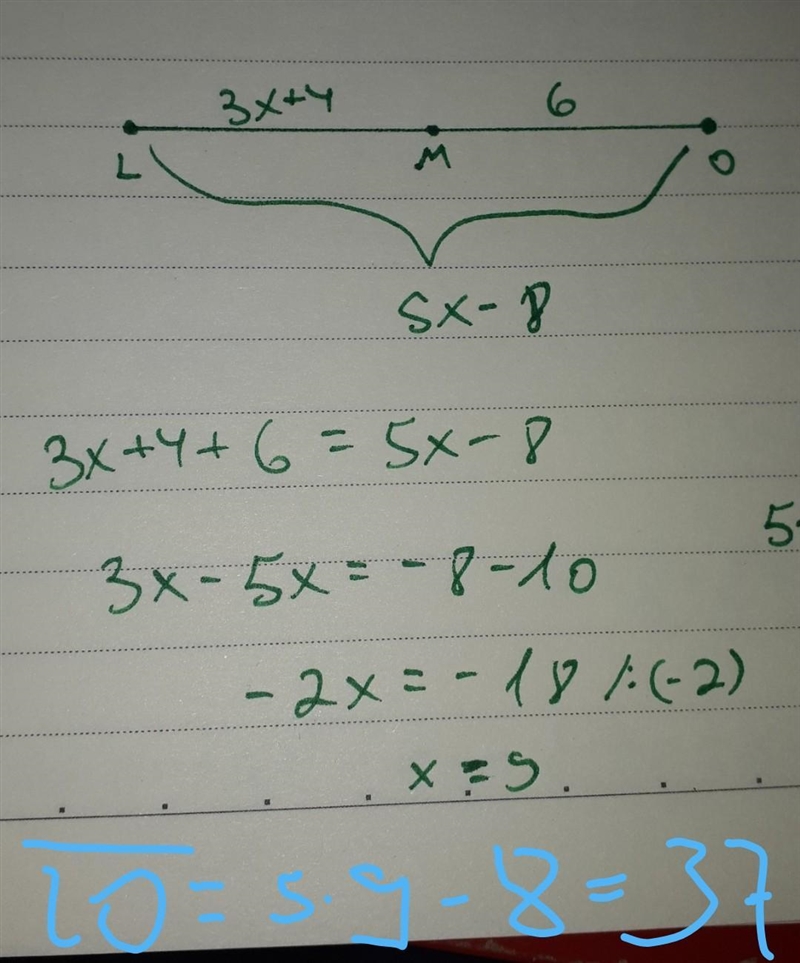 3x+4 6
L M O
5x - 8
3x+4+6 = 5x - 8
5.
3x - 5x = - 8 - 10
- 2x = - 18 /:(-2)
x = 9
LO = 5.9 - 8 = 37